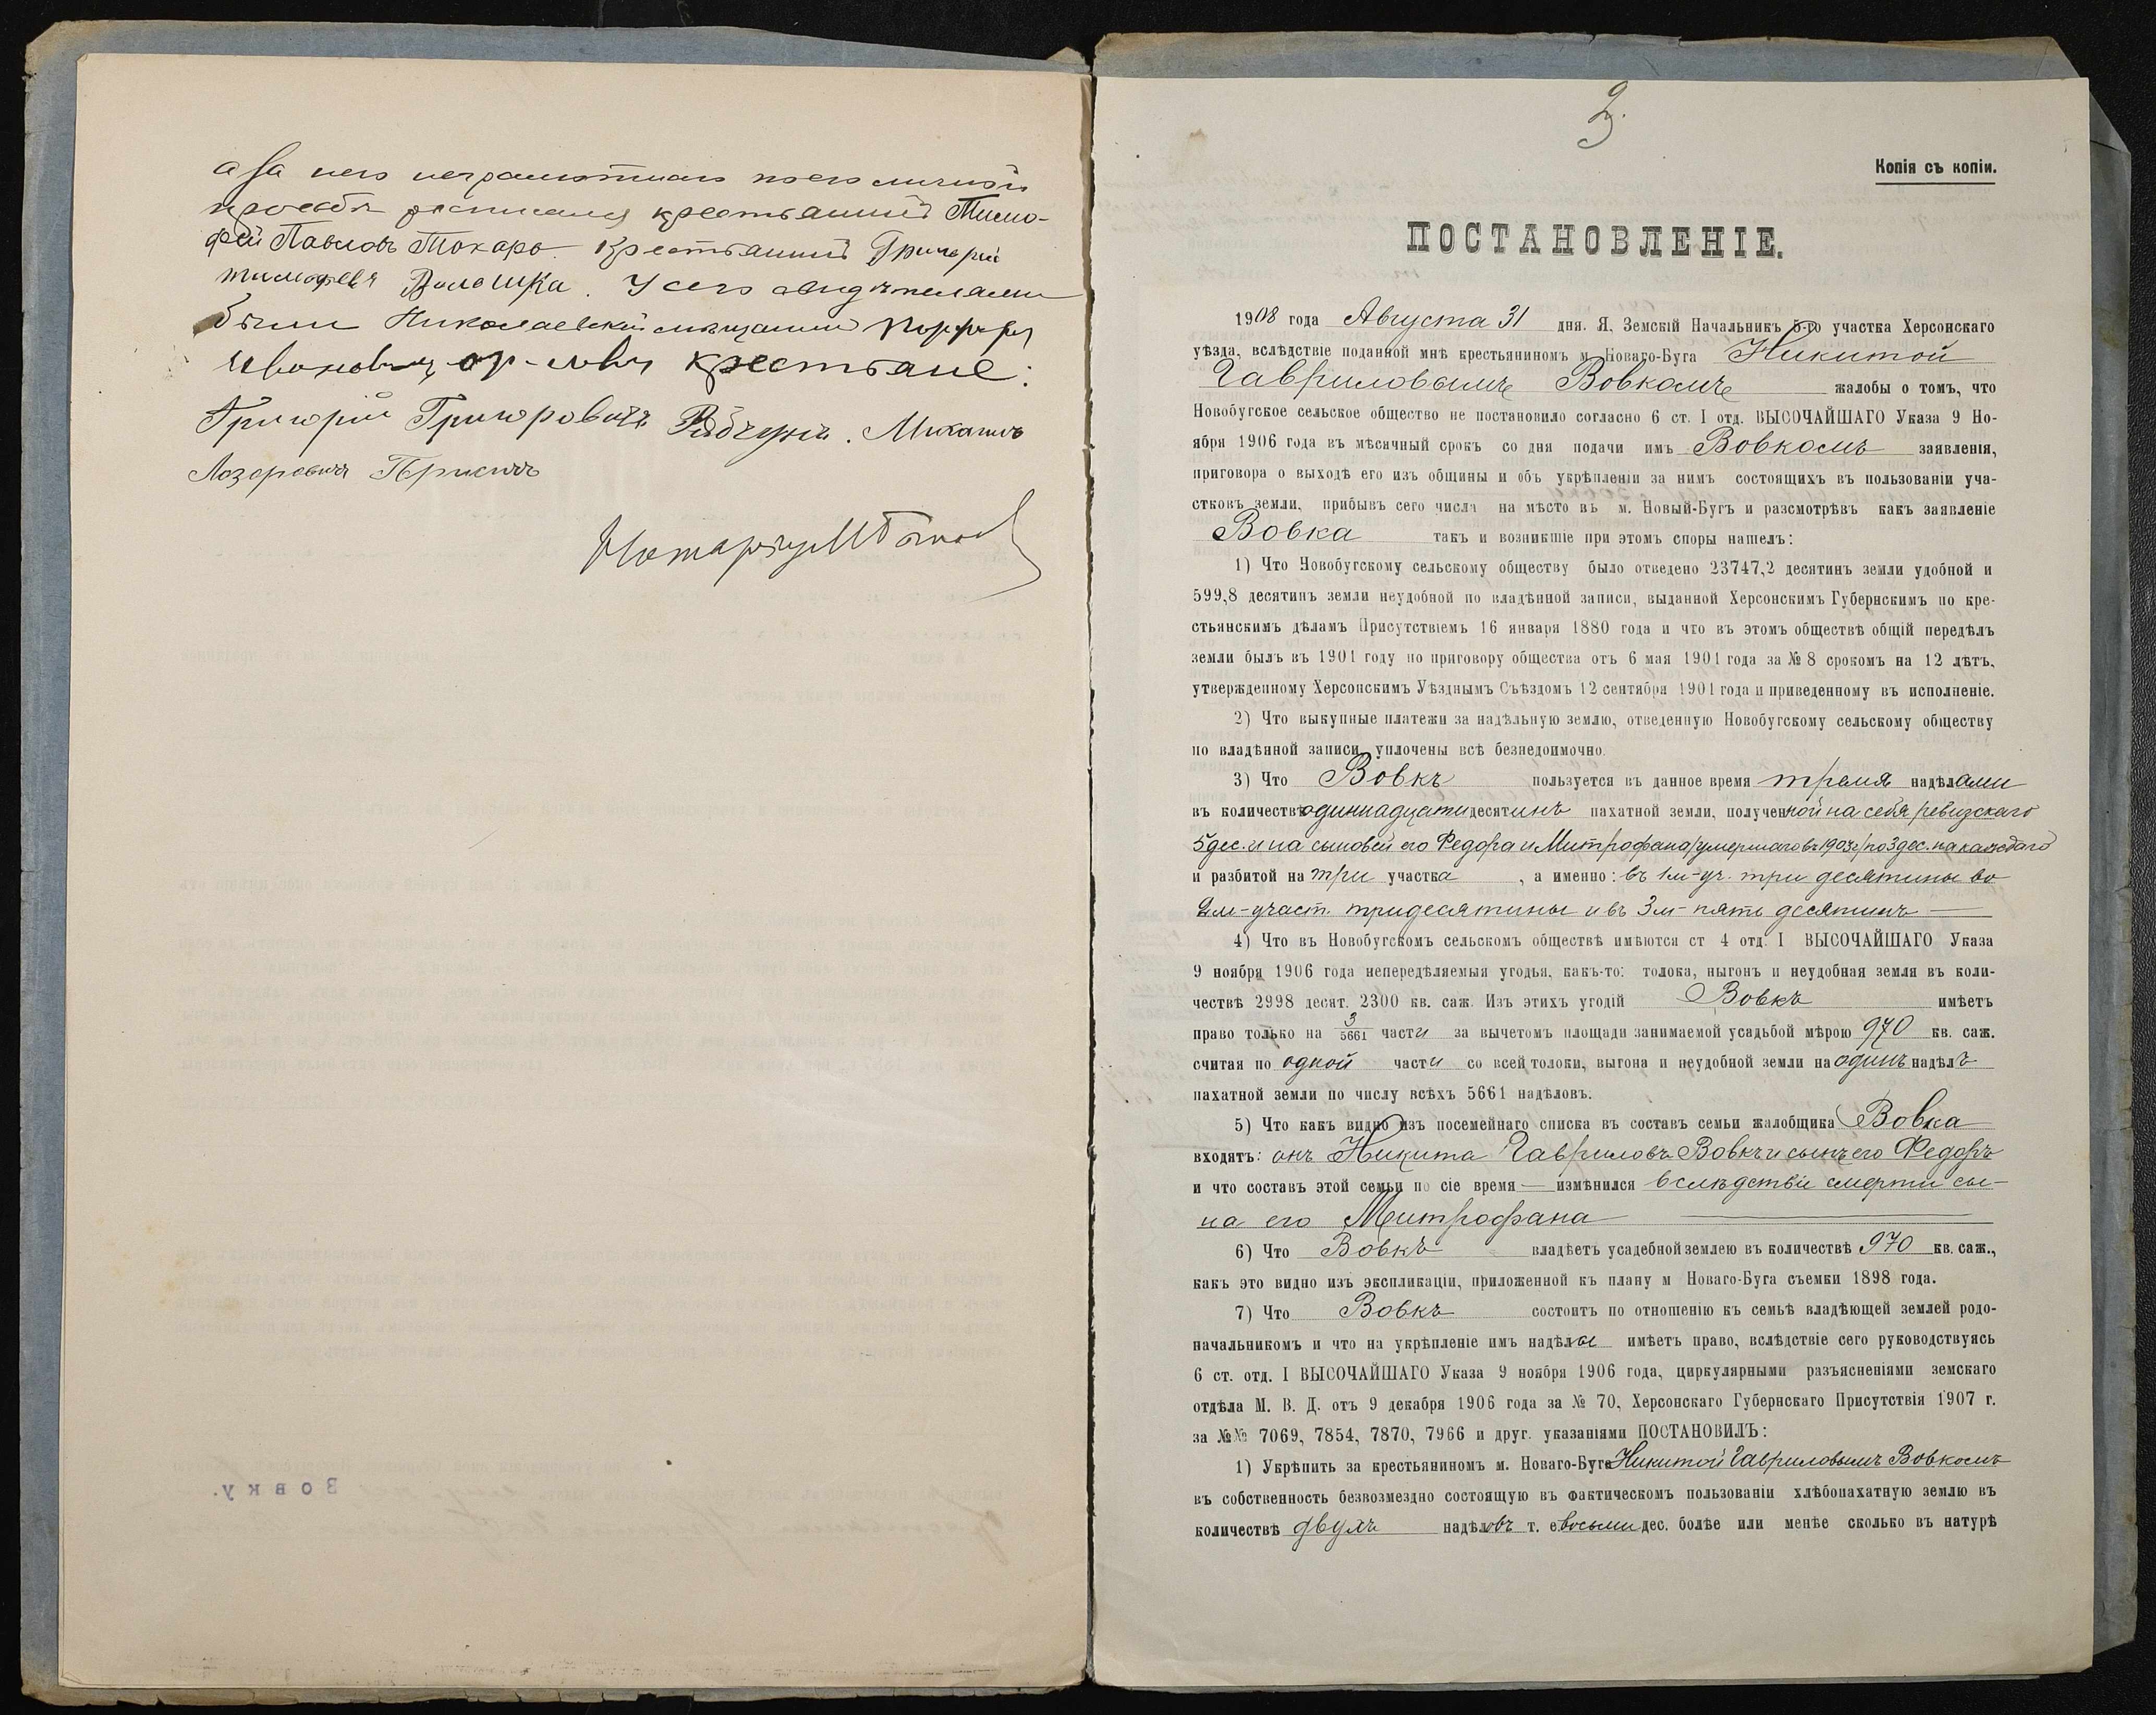 а за него неграмотнаго по его личной
просьбѣ росписался крестьянинъ Тимо-
фей Павловъ Токарь. Крестьянинъ Григорій
Тимофеевъ Волошка. У сего свидѣтелями
были Николаевскій мѣщанинъ
Ивановичъ крестьяне:
Григорій Григоровичъ Рябчукъ. Михаилъ
Лазоревичъ
Нотаріусъ
Вовку.
3.
Копія съ копіи.
ПОСТАНОВЛЕНІЕ.
1908 года Августа 31 дня. Я, Земскій Начальникъ 5-го участка Херсонскаго
уѣзда, вслѣдствіе поданной мнѣ крестьяниномъ м. Новаго-Буга Никитой
Гавриловымъ Вовкомъ жалобы о томъ, что
Новобугское сельское общество не постановило согласно 6 ст. I отд. ВЫСОЧАЙШАГО Указа 9 Но-
ября 1906 года въ мѣсячный срокъ со дня подачи имъ Вовкомъ заявленія,
приговора о выходѣ его изъ общины и объ укрѣпленіи за нимъ состоящихъ въ пользованіи уча-
стковъ земли, прибывъ сего числа на мѣсто въ м. Новый-Бугъ и разсмотрѣвъ какъ заявленіе
Вовка такъ и возникшіе при этомъ споры нашелъ:
1) Что Новобугскому сельскому обществу было отведено 23747,2 десятинъ земли удобной и
599,8 десятинъ земли неудобной по владѣнной записи, выданной Херсонскимъ Губернскимъ по кре-
стьянскимъ дѣламъ Присутствіемъ 16 января 1880 года и что въ этомъ обществѣ общій передѣлъ
земли былъ въ 1901 году по приговору общества отъ 6 мая 1901 года за № 8 срокомъ на 12 лѣтъ,
утвержденному Херсонскимъ Уѣзднымъ Съѣздомъ 12 сентября 1901 года и приведенному въ исполненіе.
2) Что выкупные платежи за надѣльную землю, отведенную Новобугскому сельскому обществу
по владѣнной записи уплочены всѣ безнедоимочно.
3) Что Вовкъ пользуется въ данное время тремя надѣлами
въ количествѣ одиннадцати десятинъ пахатной земли, полученной на себя ревизскаго
5 дес. и на сыновей его Федора и Митрофана /умершаго въ 1903 г/ по 3 дес. на каждаго
и разбитой на три участка , а именно: въ 1м-уч. три десятины во
2м-участ. три десятины и въ 3м- пять десятинъ —
4) Что въ Новобугскомъ сельскомъ обществѣ имѣются ст 4 отд. I ВЫСОЧАЙШАГО Указа
9 ноября 1906 года непередѣляемыя угодья, какъ-то: толока, выгонъ и неудобная земля въ коли-
чествѣ 2998 десят. 2300 кв. саж. Изъ этихъ угодій Вовкъ имѣетъ
право только на 3/5661 части за вычетомъ площади занимаемой усадьбой мѣрою 970 кв. саж.
считая по одной части со всей толоки, выгона и неудобной земли на одинъ надѣлъ
пахатной земли по числу всѣхъ 5661 надѣловъ.
5) Что какъ видно изъ посемейнаго списка въ составъ семьи жалобщика Вовка
входятъ: онъ Никита Гавриловъ Вовкъ и сынъ его Федоръ
и что составъ этой семьи по сіе время — измѣнился вслѣдствіи смерти сы-
на его Митрофана —
6) Что Вовкъ владѣетъ усадебной землею въ количествѣ 970 кв. саж.,
какъ это видно изъ экспликаціи, приложенной къ плану м Новаго-Буга съемки 1898 года.
7) Что Вовкъ состоитъ по отношенію къ семьѣ владѣющей землей родо-
начальникомъ и что на укрѣпленіе имъ надѣлы имѣетъ право, вслѣдствіе сего руководствуясь
6 ст. отд. I ВЫСОЧАЙШАГО Указа 9 ноября 1906 года, циркулярными разъясненіями земскаго
отдѣла М. В. Д. отъ 9 декабря 1906 года за № 70, Херсонскаго Губернскаго Присутствія 1907 г.
за №№ 7069, 7854, 7870, 7966 и друг. указаніями ПОСТАНОВИЛЪ:
1) Укрѣпить за крестьяниномъ м. Новаго-Буга Никитой Гавриловымъ Вовкомъ
въ собственность безвозмездно состоящую въ фактическомъ пользованіи хлѣбопахатную землю въ
количествѣ двухъ надѣловъ т. е. восьми дес. болѣе или менѣе сколько въ натурѣ